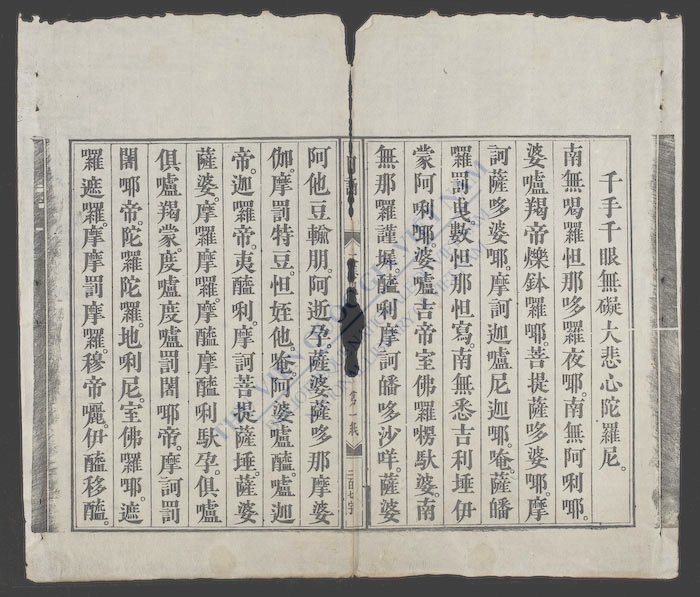 千手千眼無礙大悲心陀羅尼。
南無喝羅怛那哆羅夜耶。南無阿唎耶。
婆嚧羯帝爍鉢羅耶。菩提薩哆婆耶。摩
訶薩哆婆耶。摩訶迦嚧尼迦耶。唵。薩皤
囉罰曳。數怛那怛寫。南無悉吉利埵伊
蒙阿唎耶。婆嚧吉帝室佛羅楞馱婆。南
無那羅謹墀。醯利摩訶皤哆沙咩。薩婆
阿他豆輸朋。阿逝孕。薩婆薩哆那摩婆
伽。摩罰特豆。怛姪他。唵。阿婆嚧醯。嚧迦
帝。迦羅帝。夷醯唎。摩訶菩提薩埵。薩婆
薩婆。摩羅摩羅。摩醯摩醯利馱孕。俱嚧
俱嚧羯蒙。度嚧度嚧罰闍耶帝。摩訶罰
闍耶帝。陀羅陀羅。地唎尼。室佛羅耶。遮
囉遮囉。摩摩罰摩羅。穆帝囇。伊醯移醯。